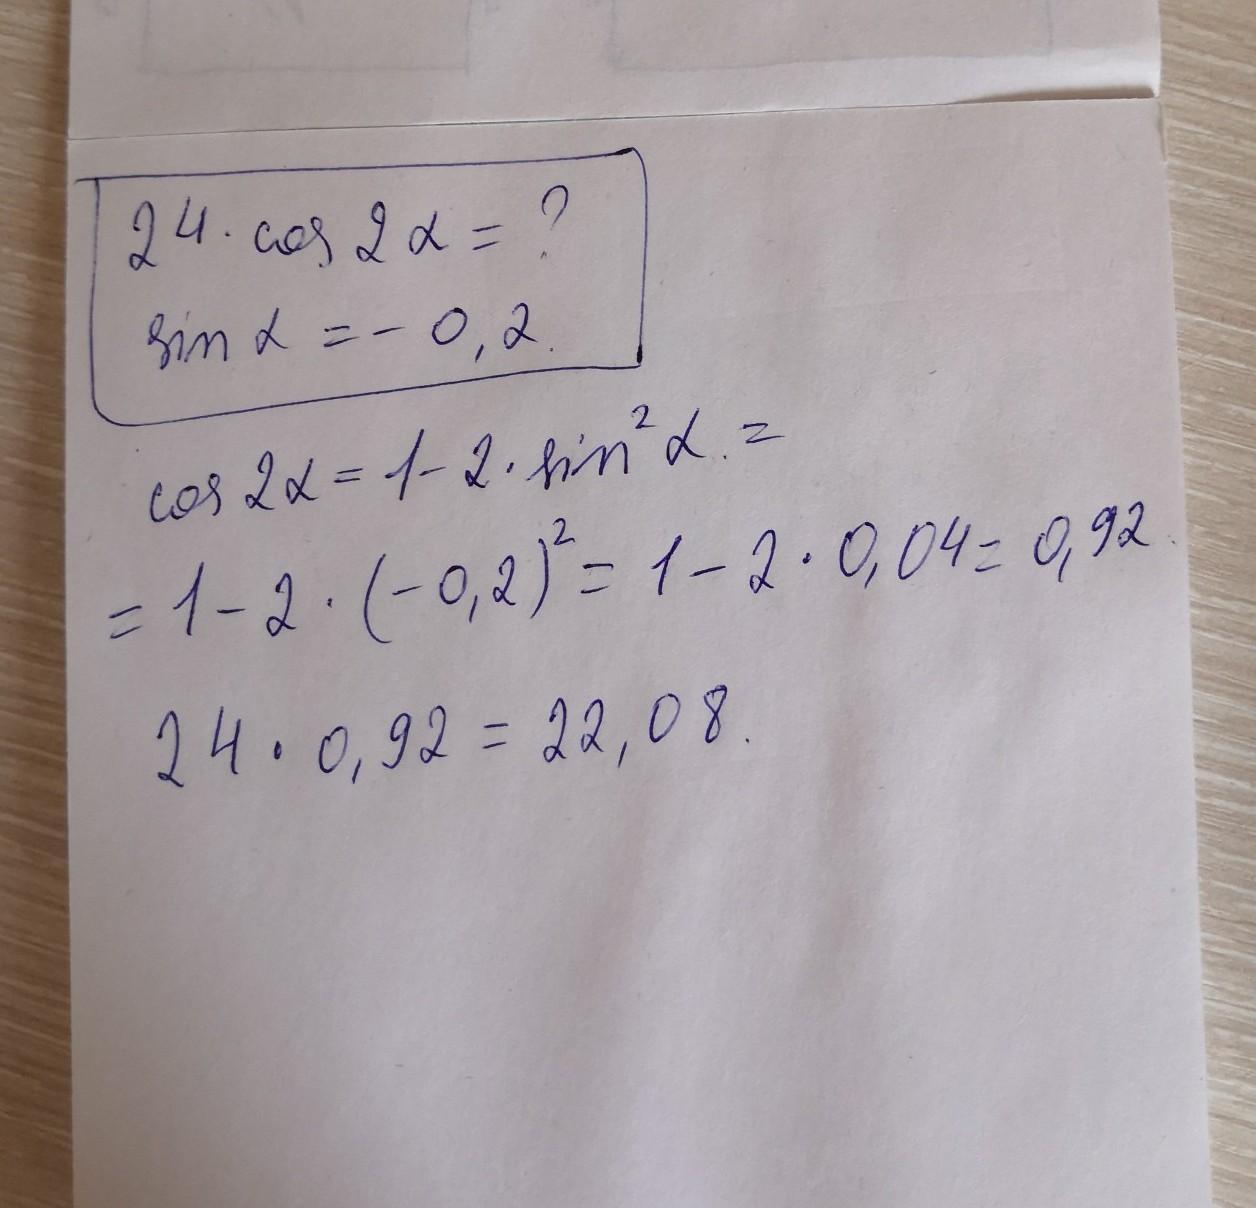 24 · cos 2α = ?
sin α = - 0,2.
cos 2α = 1 - 2 · sin²α. =
= 1 - 2 · (-0,2)² = 1 - 2 · 0,04 = 0,92.
24 · 0,92 = 22,08.